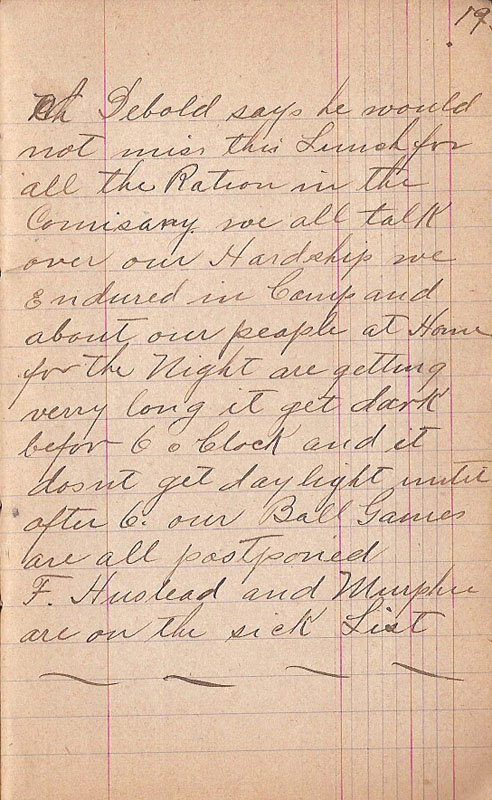 19.
Debold says he would
not miss this Lunch for
all the Ration in the
Comisary we all talk
over our Hardship we
Endured in Camp and
about our people at Home
for the Night are getting
verry long it get dark
befor 6 o Clock and it
dosnt get day light until
after 6. our Ball Games
are all postponed
F. Huslead and Murphie
are on the sick List